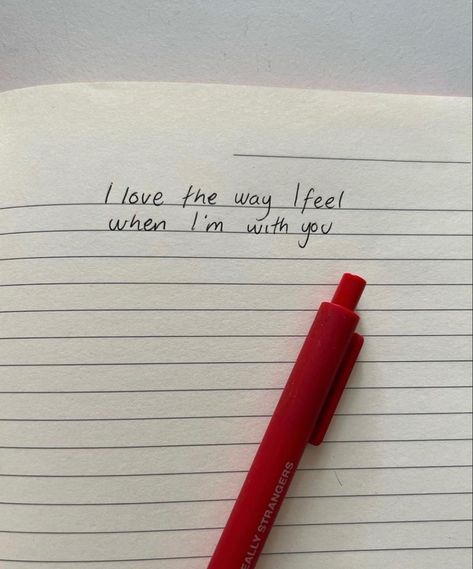 I love the way I feel
when I'm with you
EALLY STRANGERS